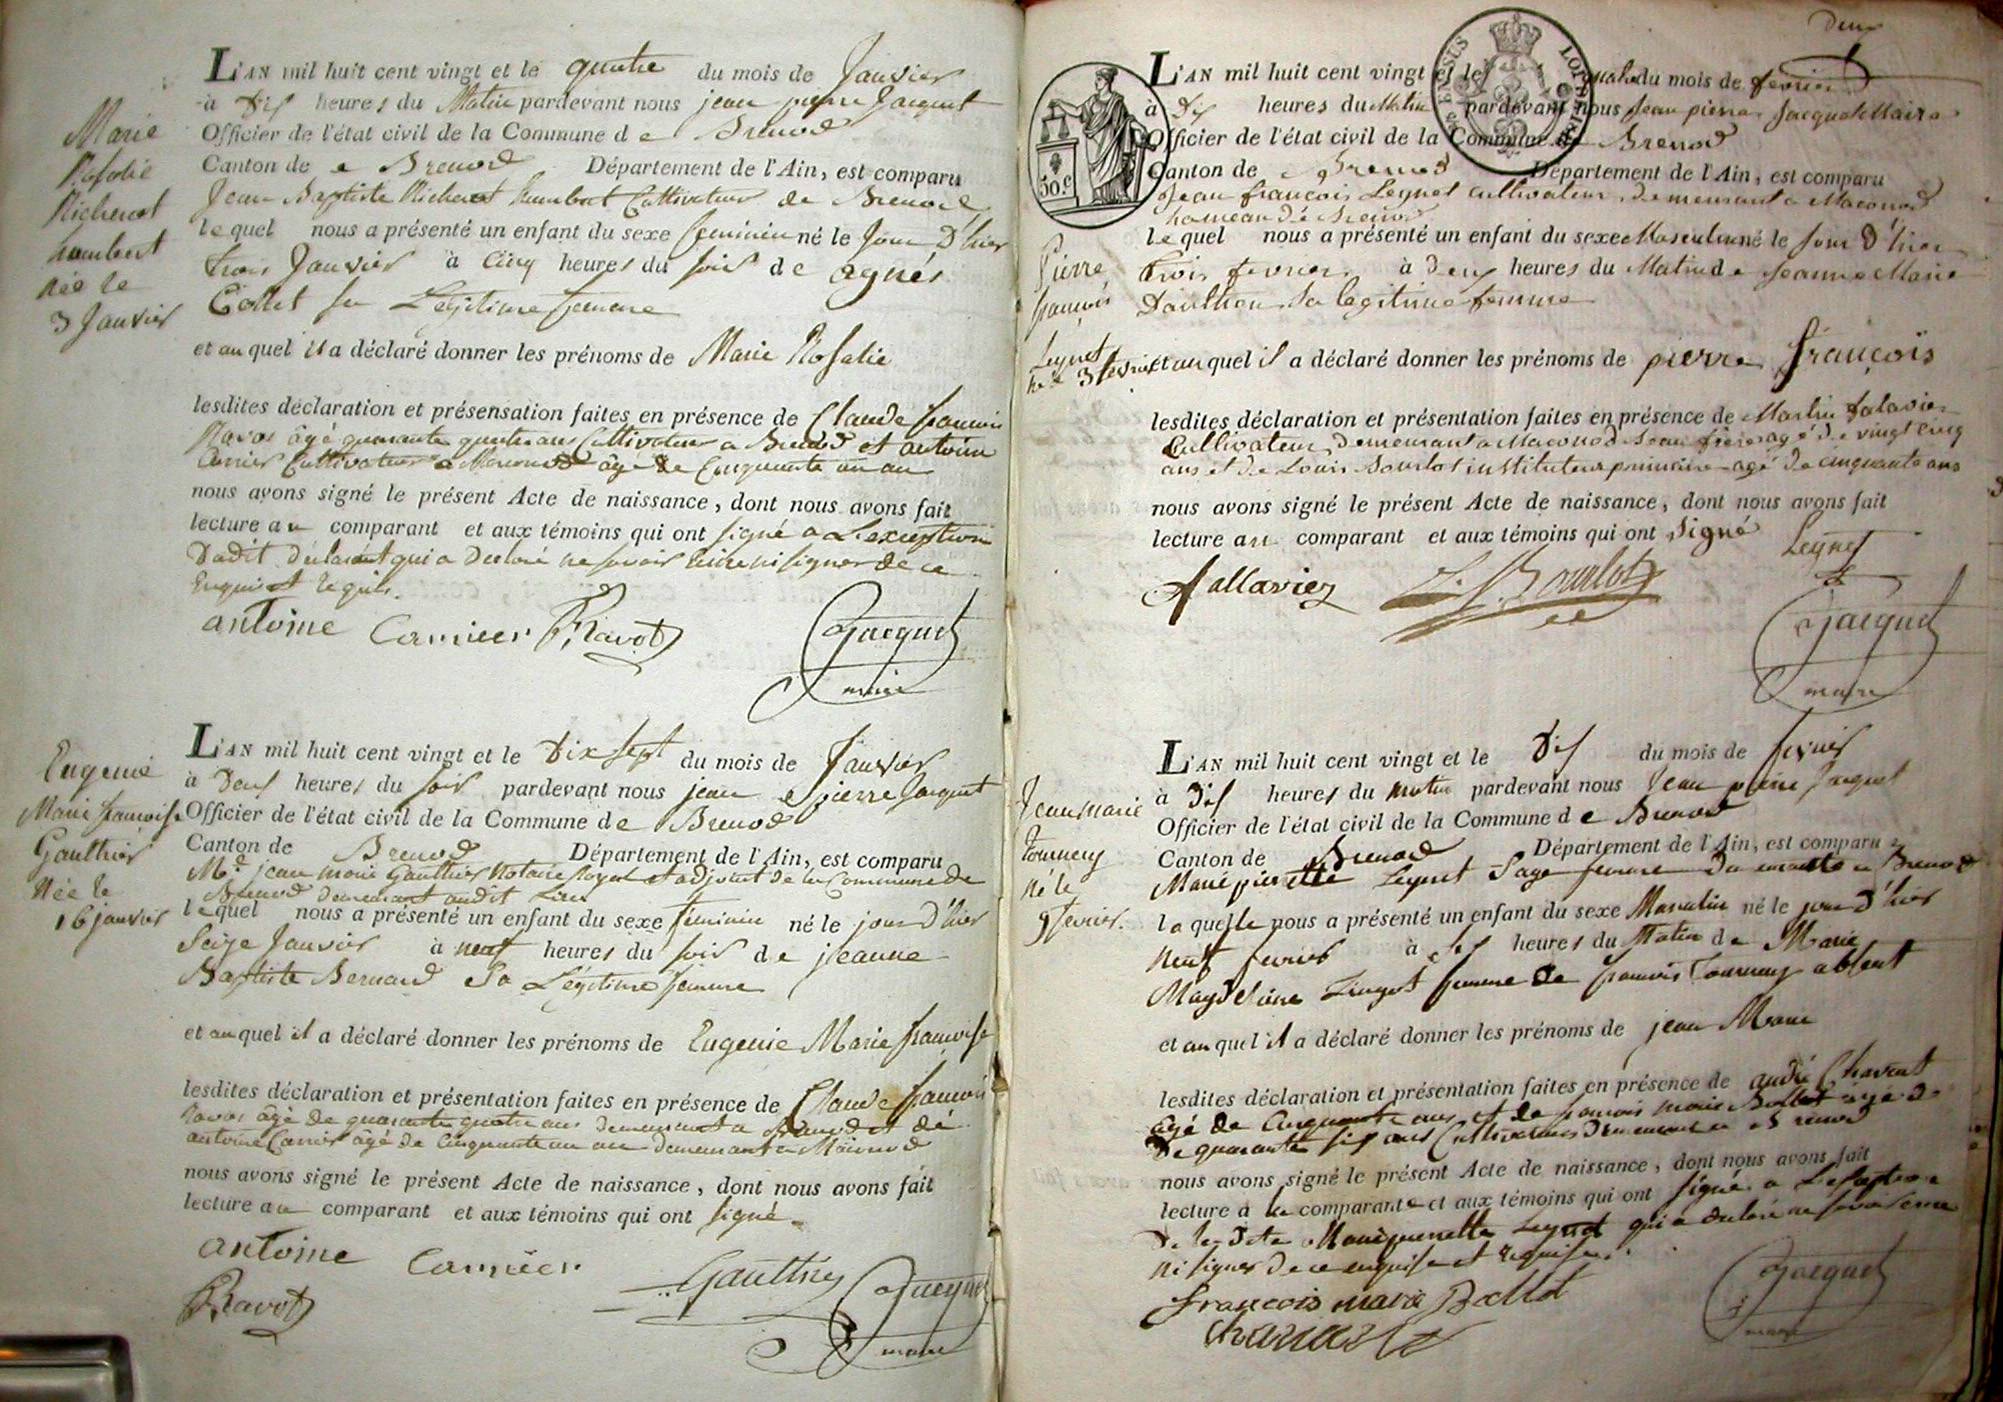 Marie
Rosalie
Richerot
humbert
Née le
3 Janvier
L'AN mil huit cent vingt et le quatre du mois de Janvier
à dix heures du Matin pardevant nous jean pierre Jacquet
Officier de l'état civil de la Commune de Brenod
Canton de Brenod Département de l'Ain, est comparu
Jean Baptiste Richerot humbert Cultivateur de Brenod
lequel nous a présenté un enfant du sexe feminin né le Jour D'hier
trois Janvier à Cinq heures du soir de agnés
Collet sa Legitime femme
et auquel il a déclaré donner les prénoms de Marie Rosalie
lesdites déclaration et présensation faites en présence de Claude francois
Ravot âgé quarante quatre ans Cultivateur a Brenod et antoine
Carrier Cultivateur a Maconod âge de Cinquante un an
nous avons signé le présent Acte de naissance, dont nous avons fait
lecture au comparant et aux témoins qui ont signé a L'exception
Dudit déclarant qui a Declaré ne savoir Ecrire ni signer de ce
Enquis et Requis.
antoine Carrier Ravot Jacquet
maire
Eugenie
Marie francoise
Gauthier
Née le
16 janvier
L'AN mil huit cent vingt et le Dix sept du mois de Janvier
à Deux heures du soir pardevant nous jean pierre Jacquet
Officier de l'état civil de la Commune de Brenod
Canton de Brenod Département de l'Ain, est comparu
Mr. jean marie Gauthier Notaire Royal et adjoint de la Commune de
Brenod demeurant audit Lieu
lequel nous a présenté un enfant du sexe feminin né le jour D'hier
Seize Janvier à neuf heures du soir de jeanne
Baptiste Bernard Sa Légitime femme
et auquel il a déclaré donner les prénoms de Eugenie Marie francoise
lesdites déclaration et présentation faites en présence de Claude francois
Ravot âgé de quarante quatre ans demeurant a Brenod et dé
antoine Carrier âgé de Cinquante un an demeurant a Maconod
nous avons signé le présent Acte de naissance, dont nous avons fait
lecture au comparant et aux témoins qui ont signé
antoine Carrier Gauthier Jacquet
Ravot maire
Deux
50 c.
Pierre
françois
Leynet
né le 3 fevrier
L'AN mil huit cent vingt et le quatre du mois de fevrier
à Dix heures du Matin pardevant nous Jean pierre Jacquet Maire
Officier de l'état civil de la Commune de Brenod
Canton de Brenod Département de l'Ain, est comparu
Jean françois Leynet cultivateur demeurant a Maconod
hameau dé Brenod
lequel nous a présenté un enfant du sexe Masculin né le Jour D'hier
trois fevrier à deux heures du Matin de Jeanne Marie
sa legitime femme
et auquel il a déclaré donner les prénoms de pierre françois
lesdites déclaration et présentation faites en présence de Martin
Cultivateur demeurant a Maconod agé de vingt cinq
ans et de Louis Bourlot instituteur primaire agé de cinquante ans
nous avons signé le présent Acte de naissance, dont nous avons fait
lecture au comparant et aux témoins qui ont signé Leynet
fallavier Bourlot
Jacquet
maire
Jean marie
Tournery
né le
9 fevrier.
L'AN mil huit cent vingt et le Dix du mois de fevrier
à Dix heures du matin pardevant nous Jean pierre Jacquet
Officier de l'état civil de la Commune de Brenod
Canton de Brenod Département de l'Ain, est comparu
Marie pierrette Leynet Sage femme Demeurante a Brenod
laquelle nous a présenté un enfant du sexe Masculin né le jour d'hier
neuf fevrier à six heures du Matin de Marie
Magdelaine femme de francois Tournery absent
et auquel il a déclaré donner les prénoms de jean Marie
lesdites déclaration et présentation faites en présence de andré Chavent
agé de Cinquante ans et de francois marie Ballot âgé de
De quarante six ans Cultivateurs demeurant a Brenod
nous avons signé le présent Acte de naissance, dont nous avons fait
lecture à la comparante et aux témoins qui ont signé a L'exception
De la dite Marie pierrette Leynet qui a declaré ne savoir Ecrire
ni signer De ce enquise et Requise.
francois marie Ballot Jacquet
maire